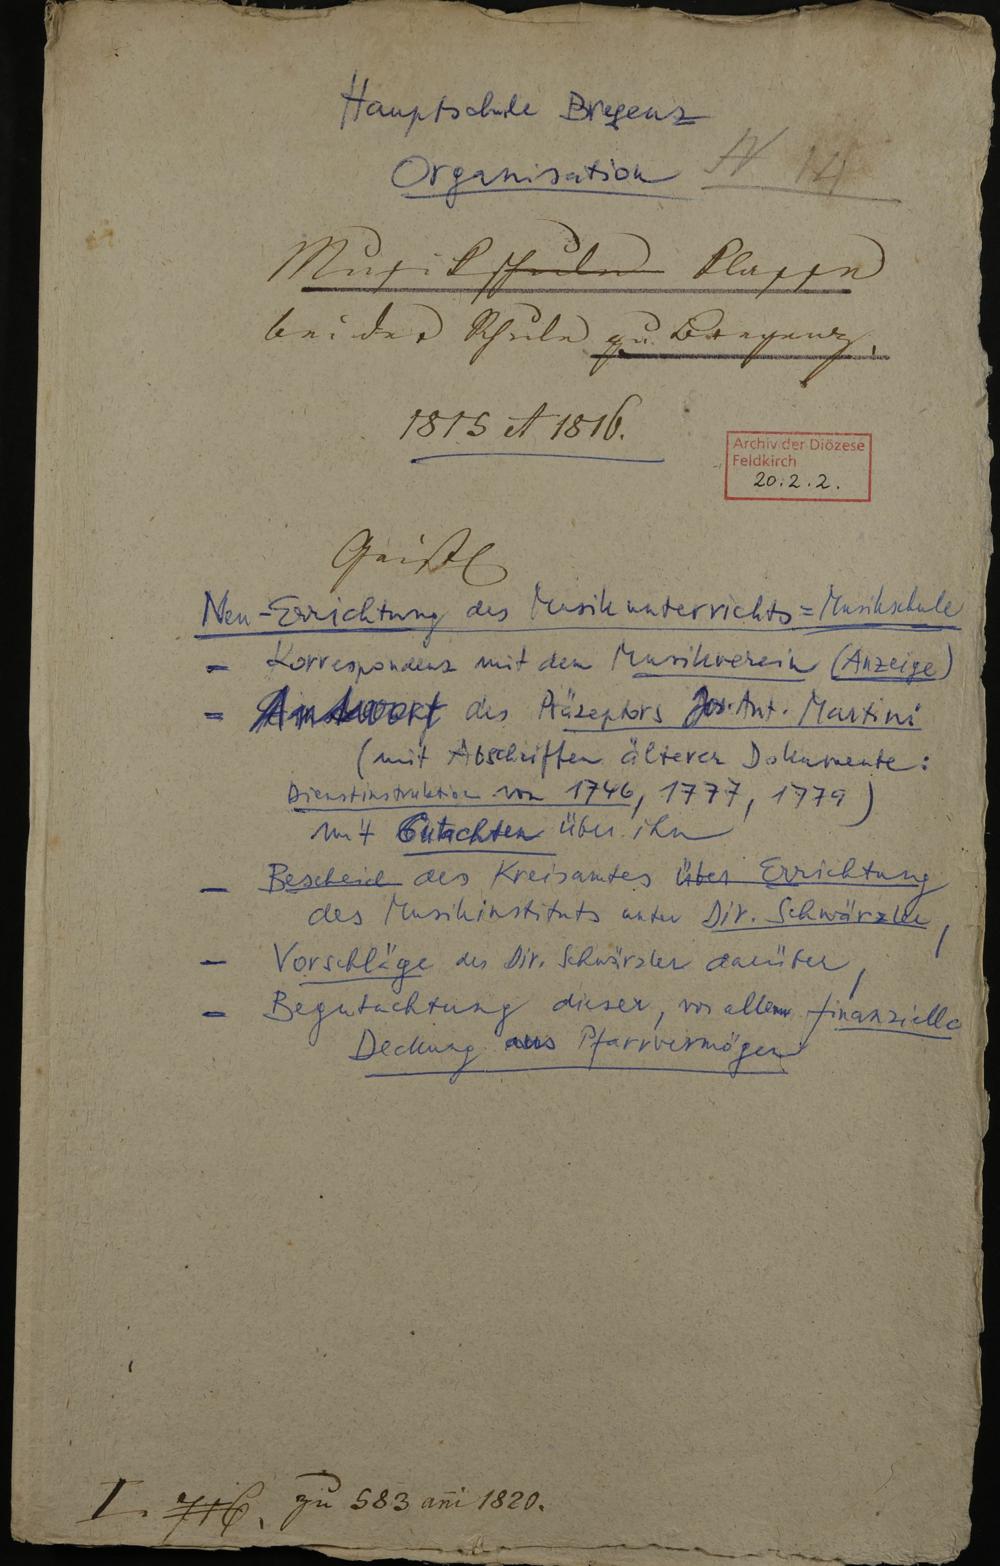 Hauptschule Bregenz
Organisation IV 14
Musikschulen Klassen
bei der Schule zu Bregenz.
1815 et 1816.
Archiv der Diözese
Feldkirch
20.2.2.
Geistl
Neu-Errichtung des Musikunterrichts=Musikschule
- Korrespondenz mit dem Musikverein (Anzeige)
- Antwort des Präzeptors Jos. Ant. Martini
(mit Abschriften älterer Dokumente:
Dienstinstruktion von 1746, 1777, 1779)
mit Gutachten über ihn
- Bescheid des Kreisamtes über Errichtung
des Musikinstituts unter Dir. Schwärzler,
- Vorschläge des Dir. Schwärzler darüber,
- Begutachtung dieser, vor allem finanzielle
Deckung aus Pfarrvermögen
I. 716. zu 583 ani 1820.